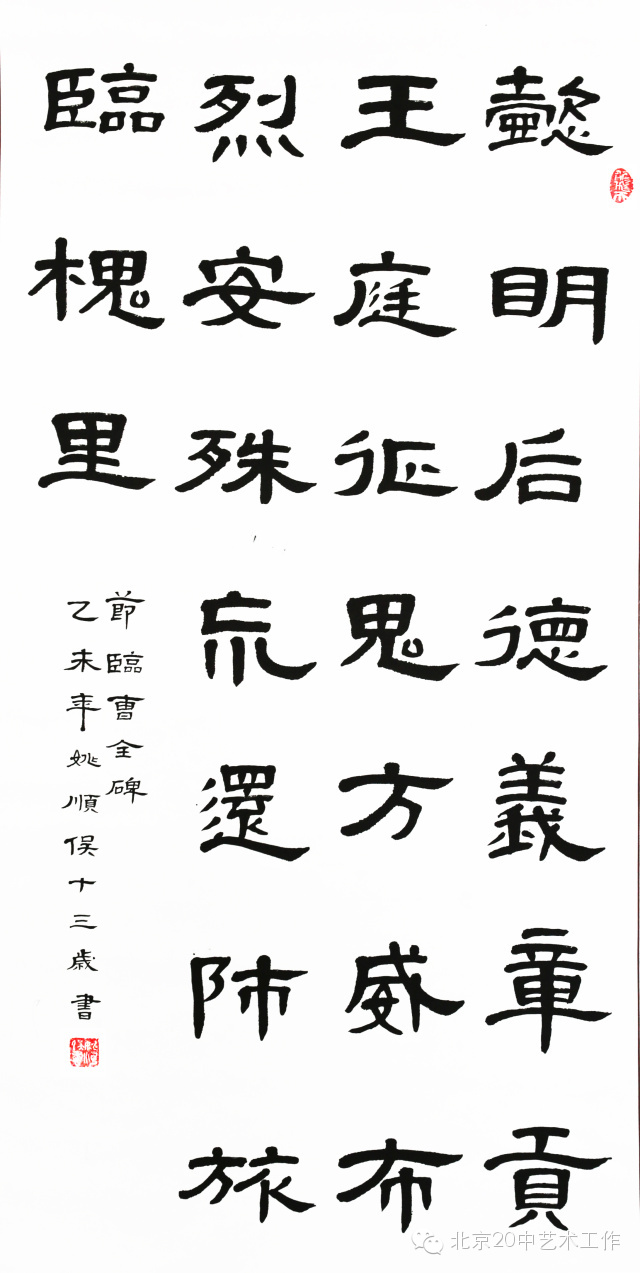 懿明后德義章貢
王庭征鬼方威布
烈安殊㡴還師旅
臨槐里
節臨曹全碑
乙未年姚順俣十三歲書
北京20中艺术工作